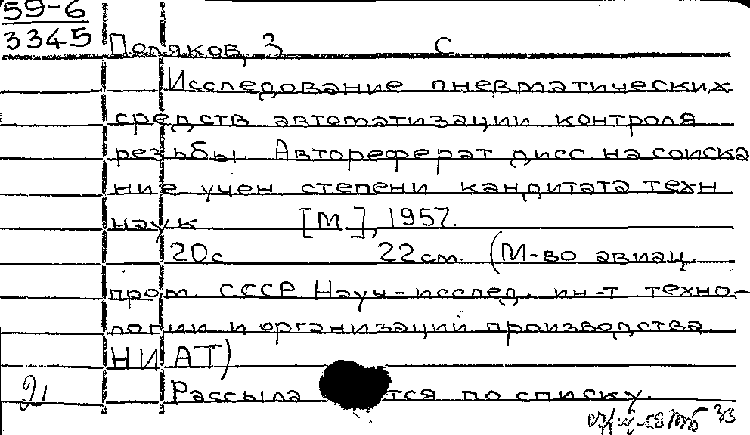 59-6
3345
Поляков, З С
Исследование пневматических
средств автоматизации контроля
резьбы. Автореферат дисс. на соиска
ние учен степени кандитата техн
наук [М.], 1957.
20с 22см. (М-во авиац.
пром. СССР Науч-исслед. ин-т техно-
логии и организаций производства
НИАТ)
21 Рассыла тся по списку.